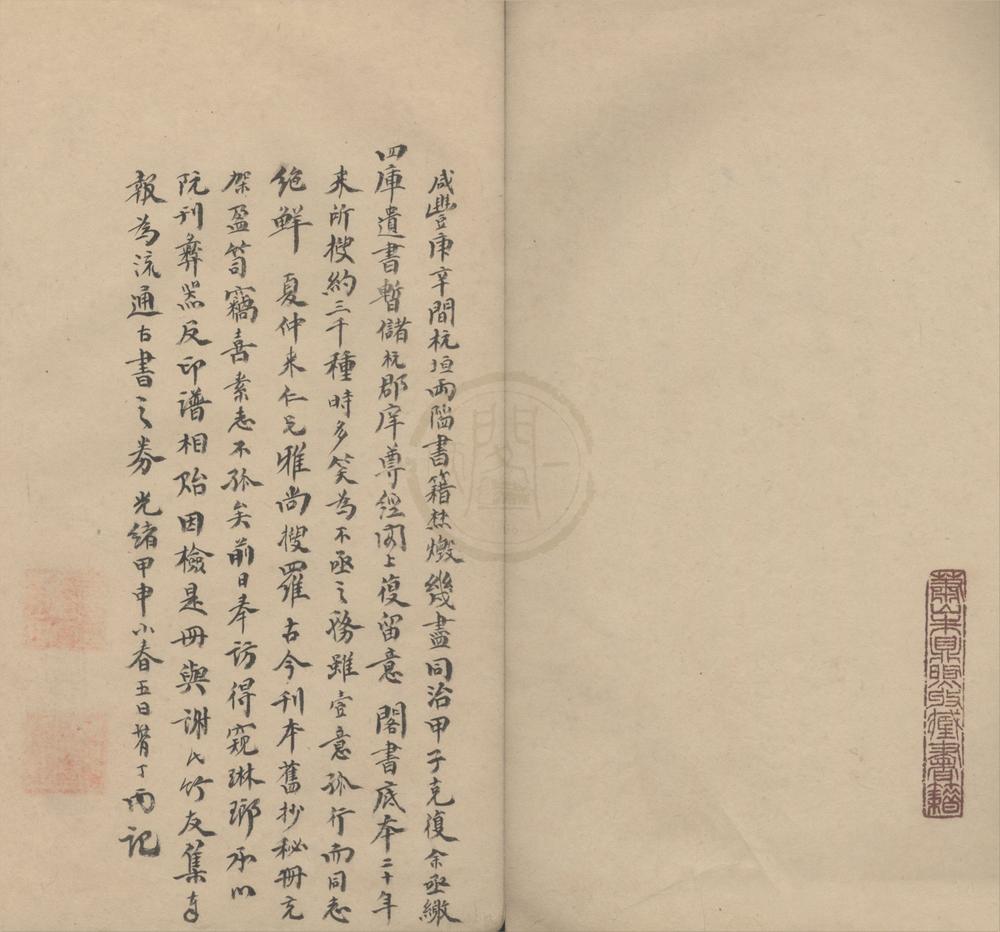 蕭山朱鼎煦收藏書籍
咸豐庚辛間杭垣兩陷書籍焚燬幾盡同治甲子克復余亟繳
四庫遺書暫儲杭郡庠尊經閣上復留意 閣書底本二十年
来所搜約三千種時多笑為不亟之務雖壹意孤行而同志
絶鮮 夏仲来仁兄雅尚搜羅古今刊本舊抄秘冊充
架盈笥竊喜素志不孤矣前日奉訪得窺琳瑯承以
阮刊彝器及印譜相貽因檢是冊與謝氏竹友集奉
報為流通古書之券 光緒甲申小春五日丁丙記